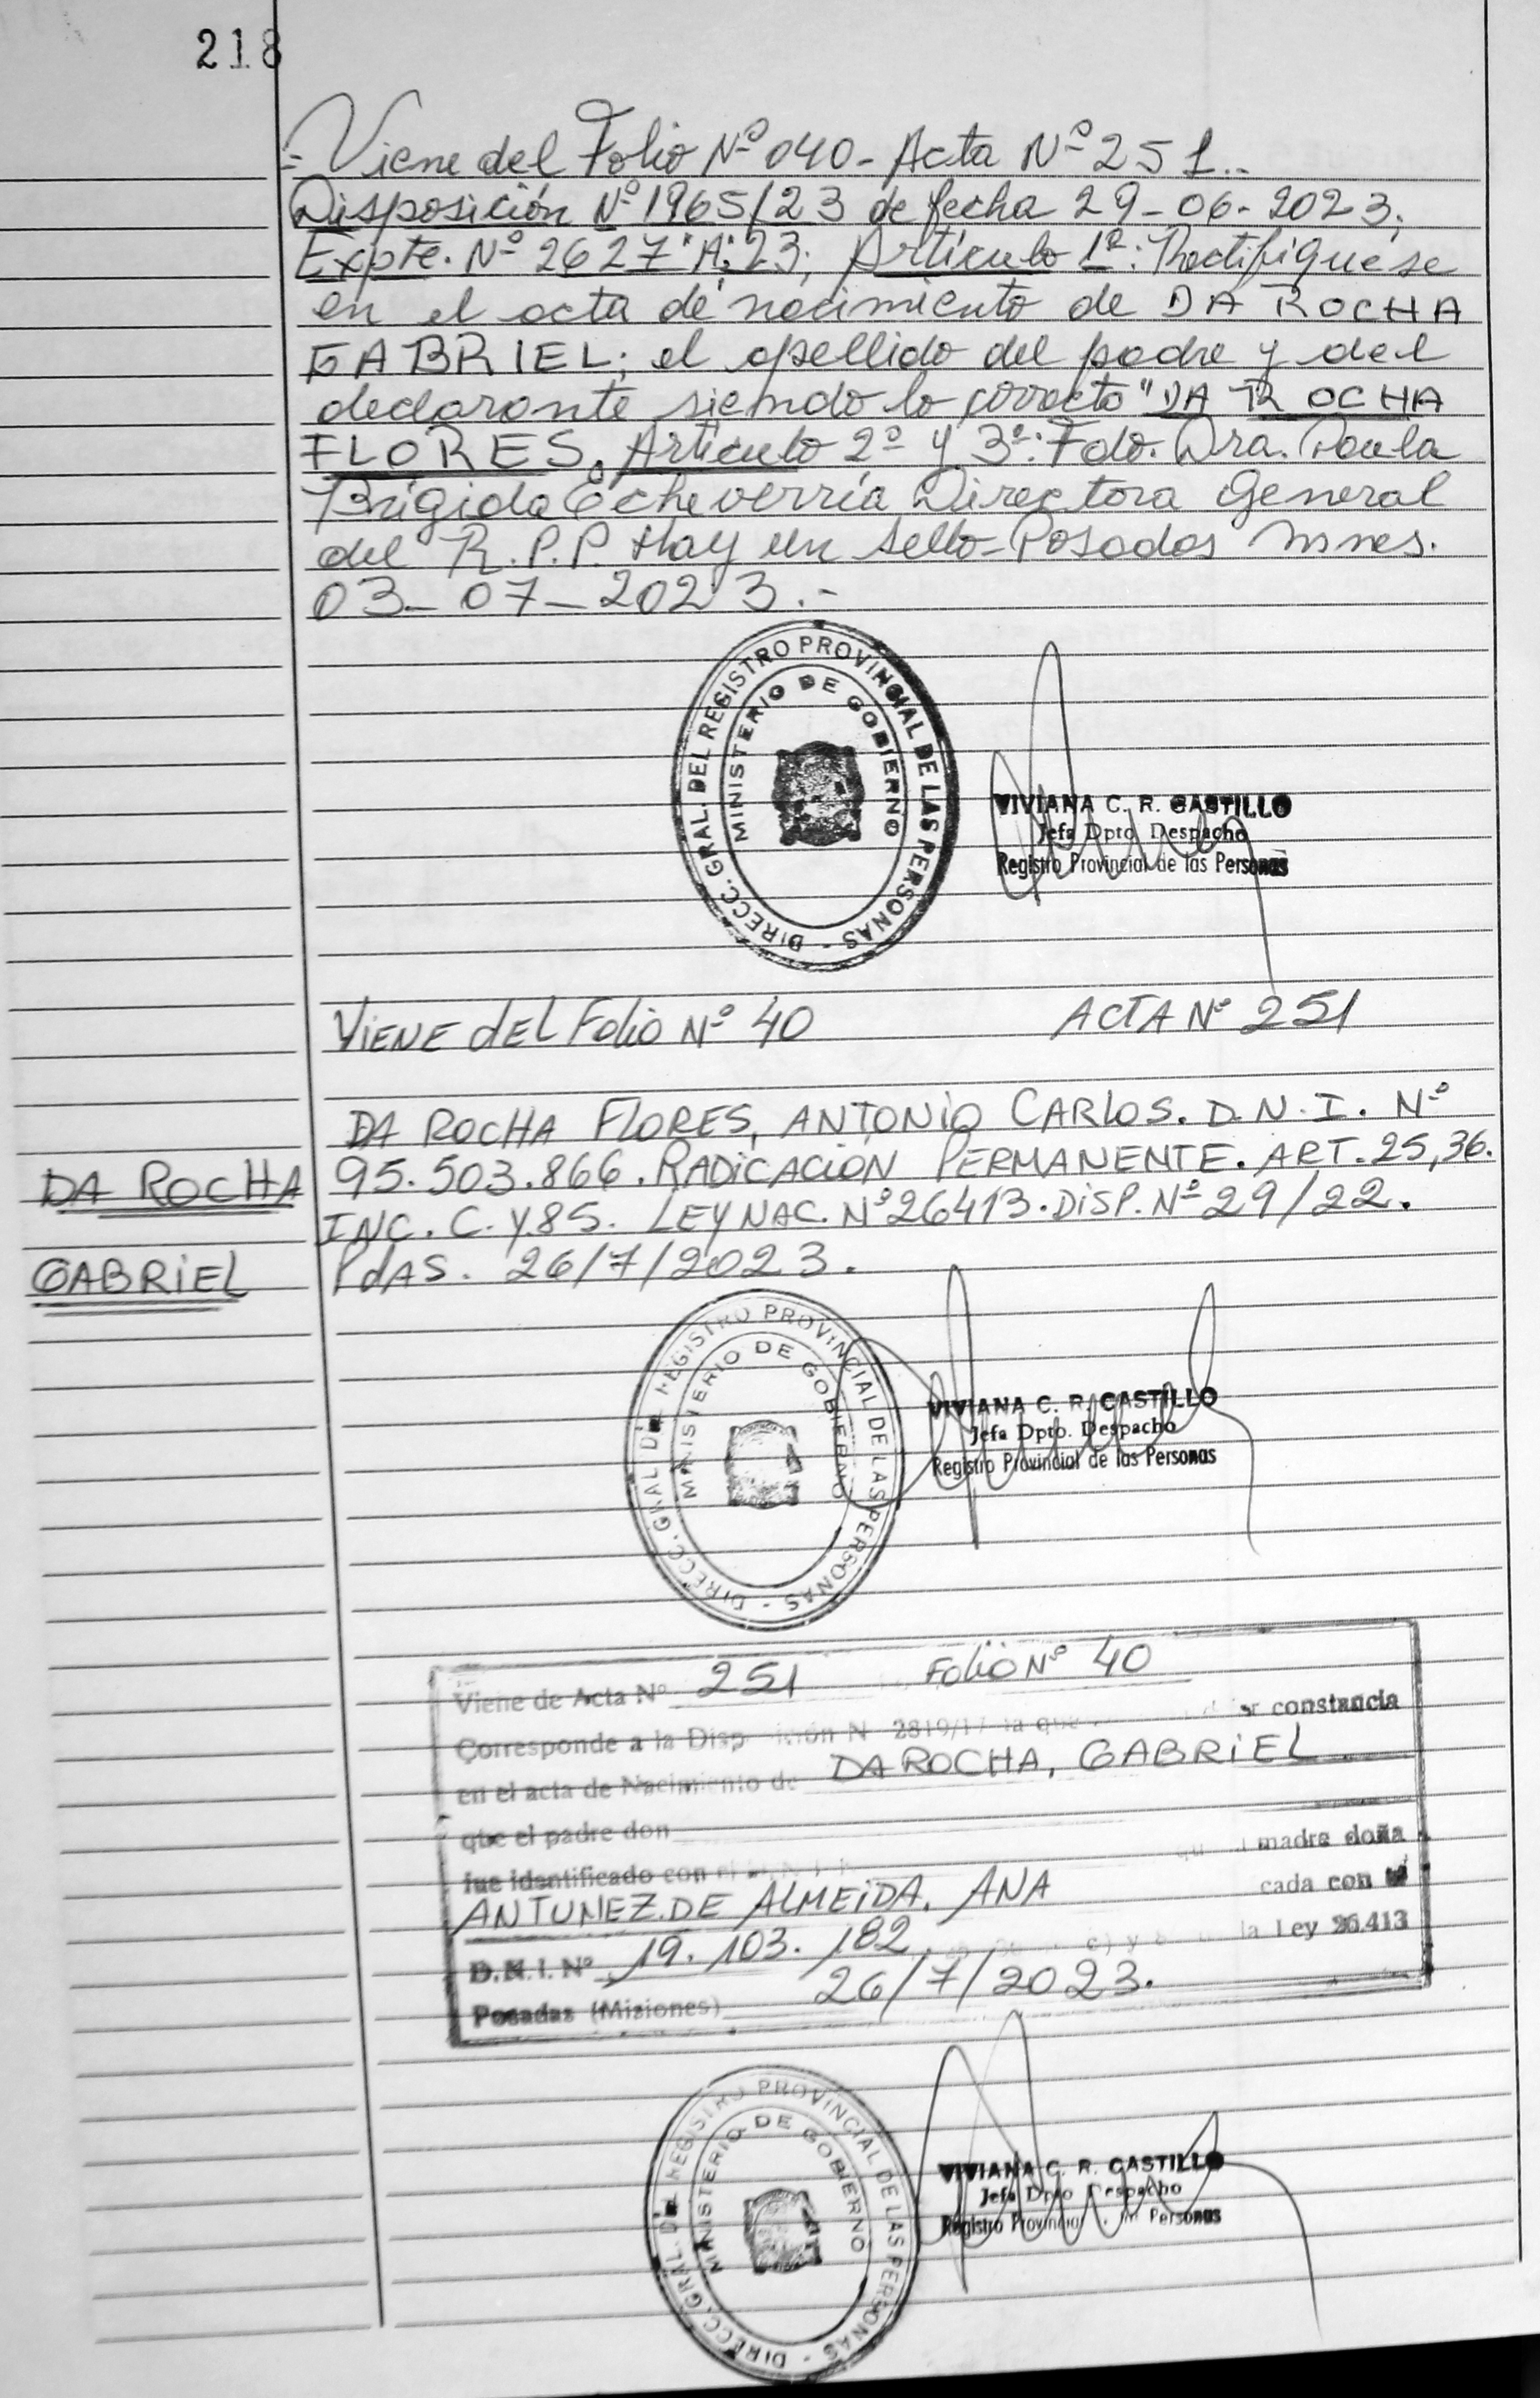 218
- Viene del Folio Nº 040 - Acta Nº 251..
Disposición Nº 1965/23 de fecha 29-06-2023;
Expte. Nº 2627"A"23; Artículo 1º: Rectifiquese
en el acta de nacimiento de DA ROCHA
GABRIEL; el apellido del padre y del
declarante siendo lo correcto "DA ROCHA
FLORES. Artículo 2º y 3º: Fdo. Dra. Paula
Brígida Echeverría Directora General
del R.P.P. Hay un sello - Posadas Mnes.
03-07-2023.-
DIRECC. GRAL. DEL REGISTRO PROVINCIAL DE LAS PERSONAS -
MINISTERIO DE GOBIERNO
VIVIANA C. R. CASTILLO
Jefa Dpto. Despacho
Registro Provincial de las Personas
VIENE dEL Folio Nº 40 ACTA Nº 251
DA ROCHA FLORES, ANTONIO CARLOS. D.N.I. Nº
DA ROCHA
95.503.866. RADICACIÓN PERMANENTE. ART. 25, 36.
INC. C. Y 85. LEY NAC. Nº 26413. DISP. Nº 29/22.
GABRIEL
PdAS. 26/7/2023.
DIRECC. GRAL. DEL REGISTRO PROVINCIAL DE LAS PERSONAS -
MINISTERIO DE GOBIERNO
VIVIANA C. R. CASTILLO
Jefa Dpto. Despacho
Registro Provincial de las Personas
Viene de Acta Nº 251 Folio Nº 40
Corresponde a la Disposición N 2819/17 la que constancia
en el acta de Nacimiento de DA ROCHA, GABRIEL
que el padre don
fue identificado con el madre doña
ANTUNEZ DE ALMEIDA, ANA cada con
D.N.I. Nº 19.103.182. c) y la Ley 26.413
Posadas (Misiones) 26/7/2023.
DIRECC. GRAL. DEL REGISTRO PROVINCIAL DE LAS PERSONAS -
MINISTERIO DE GOBIERNO
VIVIANA C. R. CASTILLO
Jefa Dpto Despacho
Registro Provincial Personas